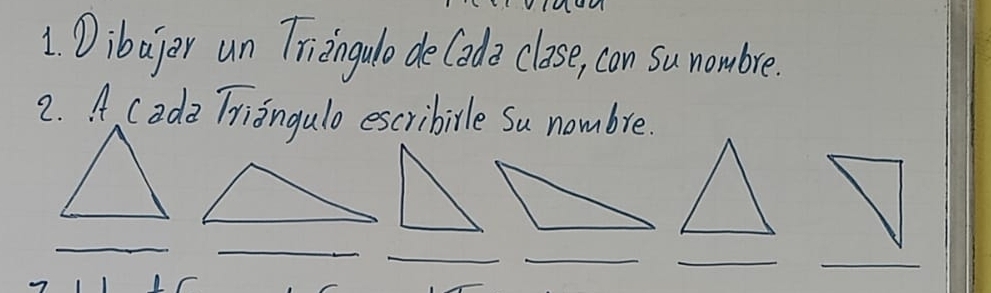 1. Dibujar un Triángulo de Cada clase, con su nombre.
2. A Cada Triángulo escribirle Su nombre.